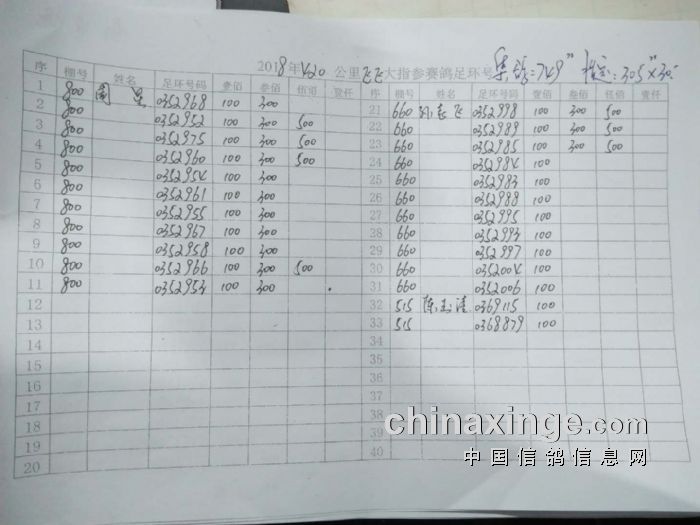 2018年420公里飞飞大指参赛鸽足环号 集鸽=749" 指定:305"×30
序 棚号 姓名 足环号码 壹佰 叁佰 伍佰 壹仟
1 800 0352968 100 300
2 800 0352952 100 300 500
3 800 0352975 100 300 500
4 800 0352960 100 300 500
5 800 0352954 100 300
6 800 0352961 100 300
7 800 0352955 100 300
8 800 0352967 100 300
9 800 0352958 100 300
10 800 0352966 100 300 500
11 800 0352953 100 300
12
13
14
15
16
17
18
19
20
序 棚号 姓名 足环号码 壹佰 叁佰 伍佰 壹仟
21 660 孙长飞 0352998 100 300 500
22 660 0352989 100 300 500
23 660 0352985 100 300 500
24 660 0352984 100
25 660 0352983 100
26 660 0352988 100
27 660 0352995 100
28 660 0352993 100
29 660 0352997 100
30 660 0352004 100
31 660 0352006 100
32 515 陈玉清 0369115 100
33 515 0368879 100
34
35
36
37
38
39
40
chinaxinge.com
中国信鸽信息网